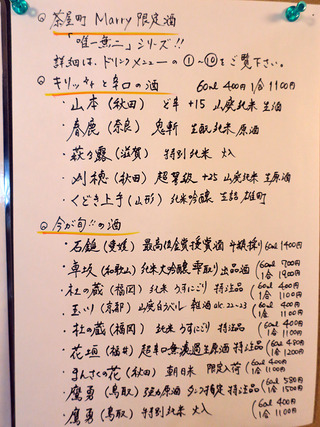 ◎ 茶屋町 Marry 限定酒
「唯一無二」シリーズ!!
詳細は、ドリンクメニューの①〜⑩をご覧下さい。
◎ キリッッと辛口の酒 60ml 400円 1合 1100円
・山本(秋田) ど辛 +15 山廃純米 生酒
・春鹿(奈良) 鬼斬 生酛純米 原酒
・萩乃露(滋賀) 特別純米 火入
・刈穂(秋田) 超弩級 +25 山廃純米 生原酒
・くどき上手(山形) 純米吟醸 雄町
◎ 今が旬!!の酒
・石鎚(愛媛) 最高位金賞受賞酒 斗瓶採り 60ml 1400円
・車坂(和歌山) 純米大吟醸 雫取り 出品酒 (60ml 700円 1合 1900円
・杜の蔵(福岡) 純米 うすにごり 特注品 (60ml 400円 1合 1100円
・玉川(京都) 山廃 白ラベル 粗酒 alc.22〜23 (60ml 400円 1合 1100円
・杜の蔵(福岡) 純米 うすにごり 特注品 (60ml 400円 1合 1100円
・花垣(福井) 超辛口 無濾過 生原酒 特注品 (60ml 480円 1合 1200円
・まんさくの花(秋田) 朝日米 限定入荷 (60ml 400円 1合 1100円
・鷹勇(鳥取) 強力 原酒 タンク指定 特注品 (60ml 580円 1合 1500円
・鷹勇(鳥取) 特別純米 火入 (60ml 400円 1合 1100円